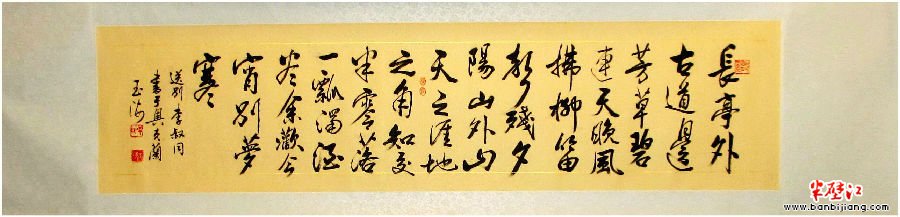 長亭外
古道邊
芳草碧
連天晚風
拂柳笛
聲殘夕
陽山外山
天之涯地
之角知交
半零落
一瓢濁酒
盡余歡今
宵別夢
寒
送別 李叔同
書于奥克蘭
半壁江
www.banbijiang.com